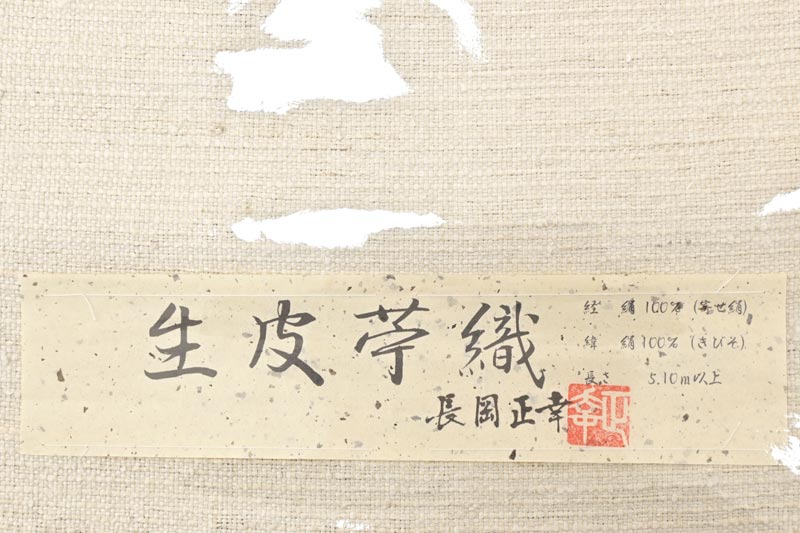 生皮苧織
長岡正幸
経 絹100% (宮世絹)
緯 絹100% (きびそ)
長さ 5.10m以上
正幸